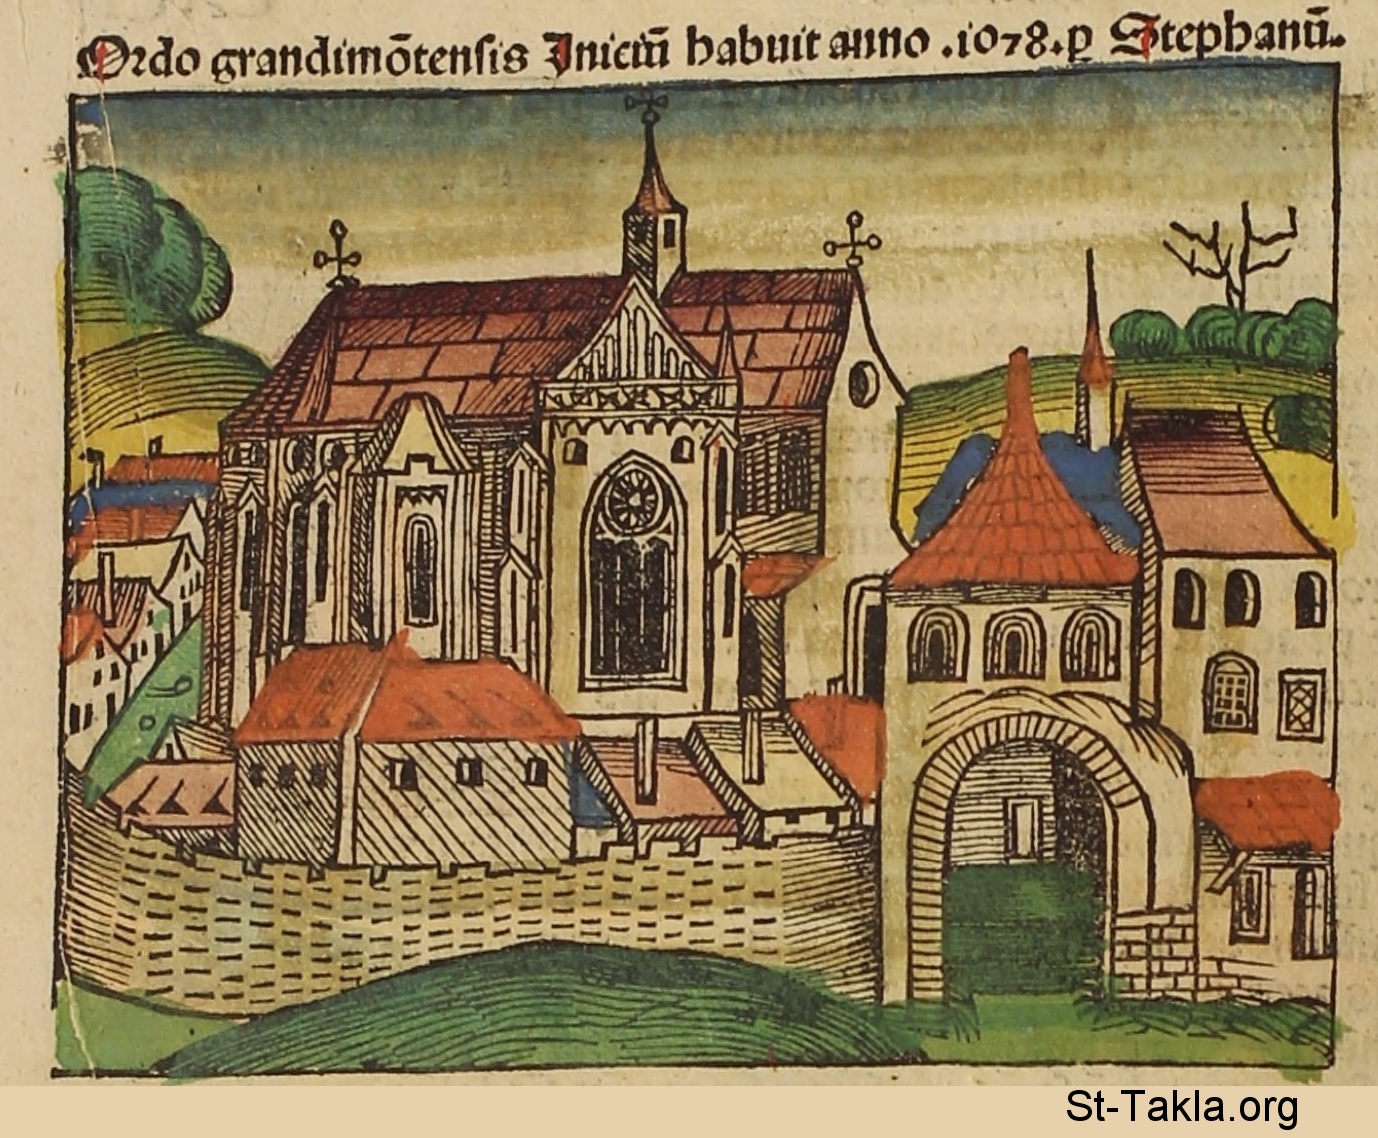 Ordo grandimōtensis Iniciū habuit anno .1078.ꝑ Stephanū.
St-Takla.org